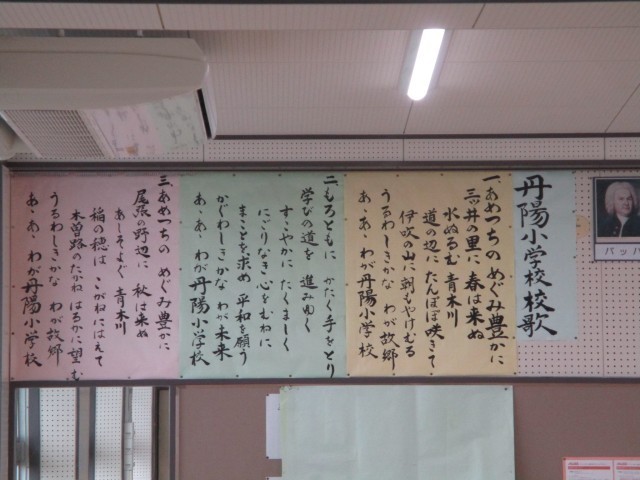 丹陽小学校校歌
一、あめつちの めぐみ豊かに
三ッ井の里に 春は来ぬ
水ぬるむ 青木川
道の辺に たんぽぽ咲きて
伊吹の山に 朝もやけむる
うるわしきかな わが故郷
あゝあゝ わが丹陽小学校
二、もろともに かたく手をとり
学びの道を 進みゆく
すこやかに たくましく
にごりなき心をむねに
まことを求め 平和を願う
かぐわしきかな わが未来
あゝあゝ わが丹陽小学校
三、あめつちの めぐみ豊かに
尾張の野辺に 秋は来ぬ
あしそよぐ 青木川
稲の穂は こがねにはえて
木曽路のたかね はるかに望む
うるわしきかな わが故郷
あゝあゝ わが丹陽小学校
バッハ